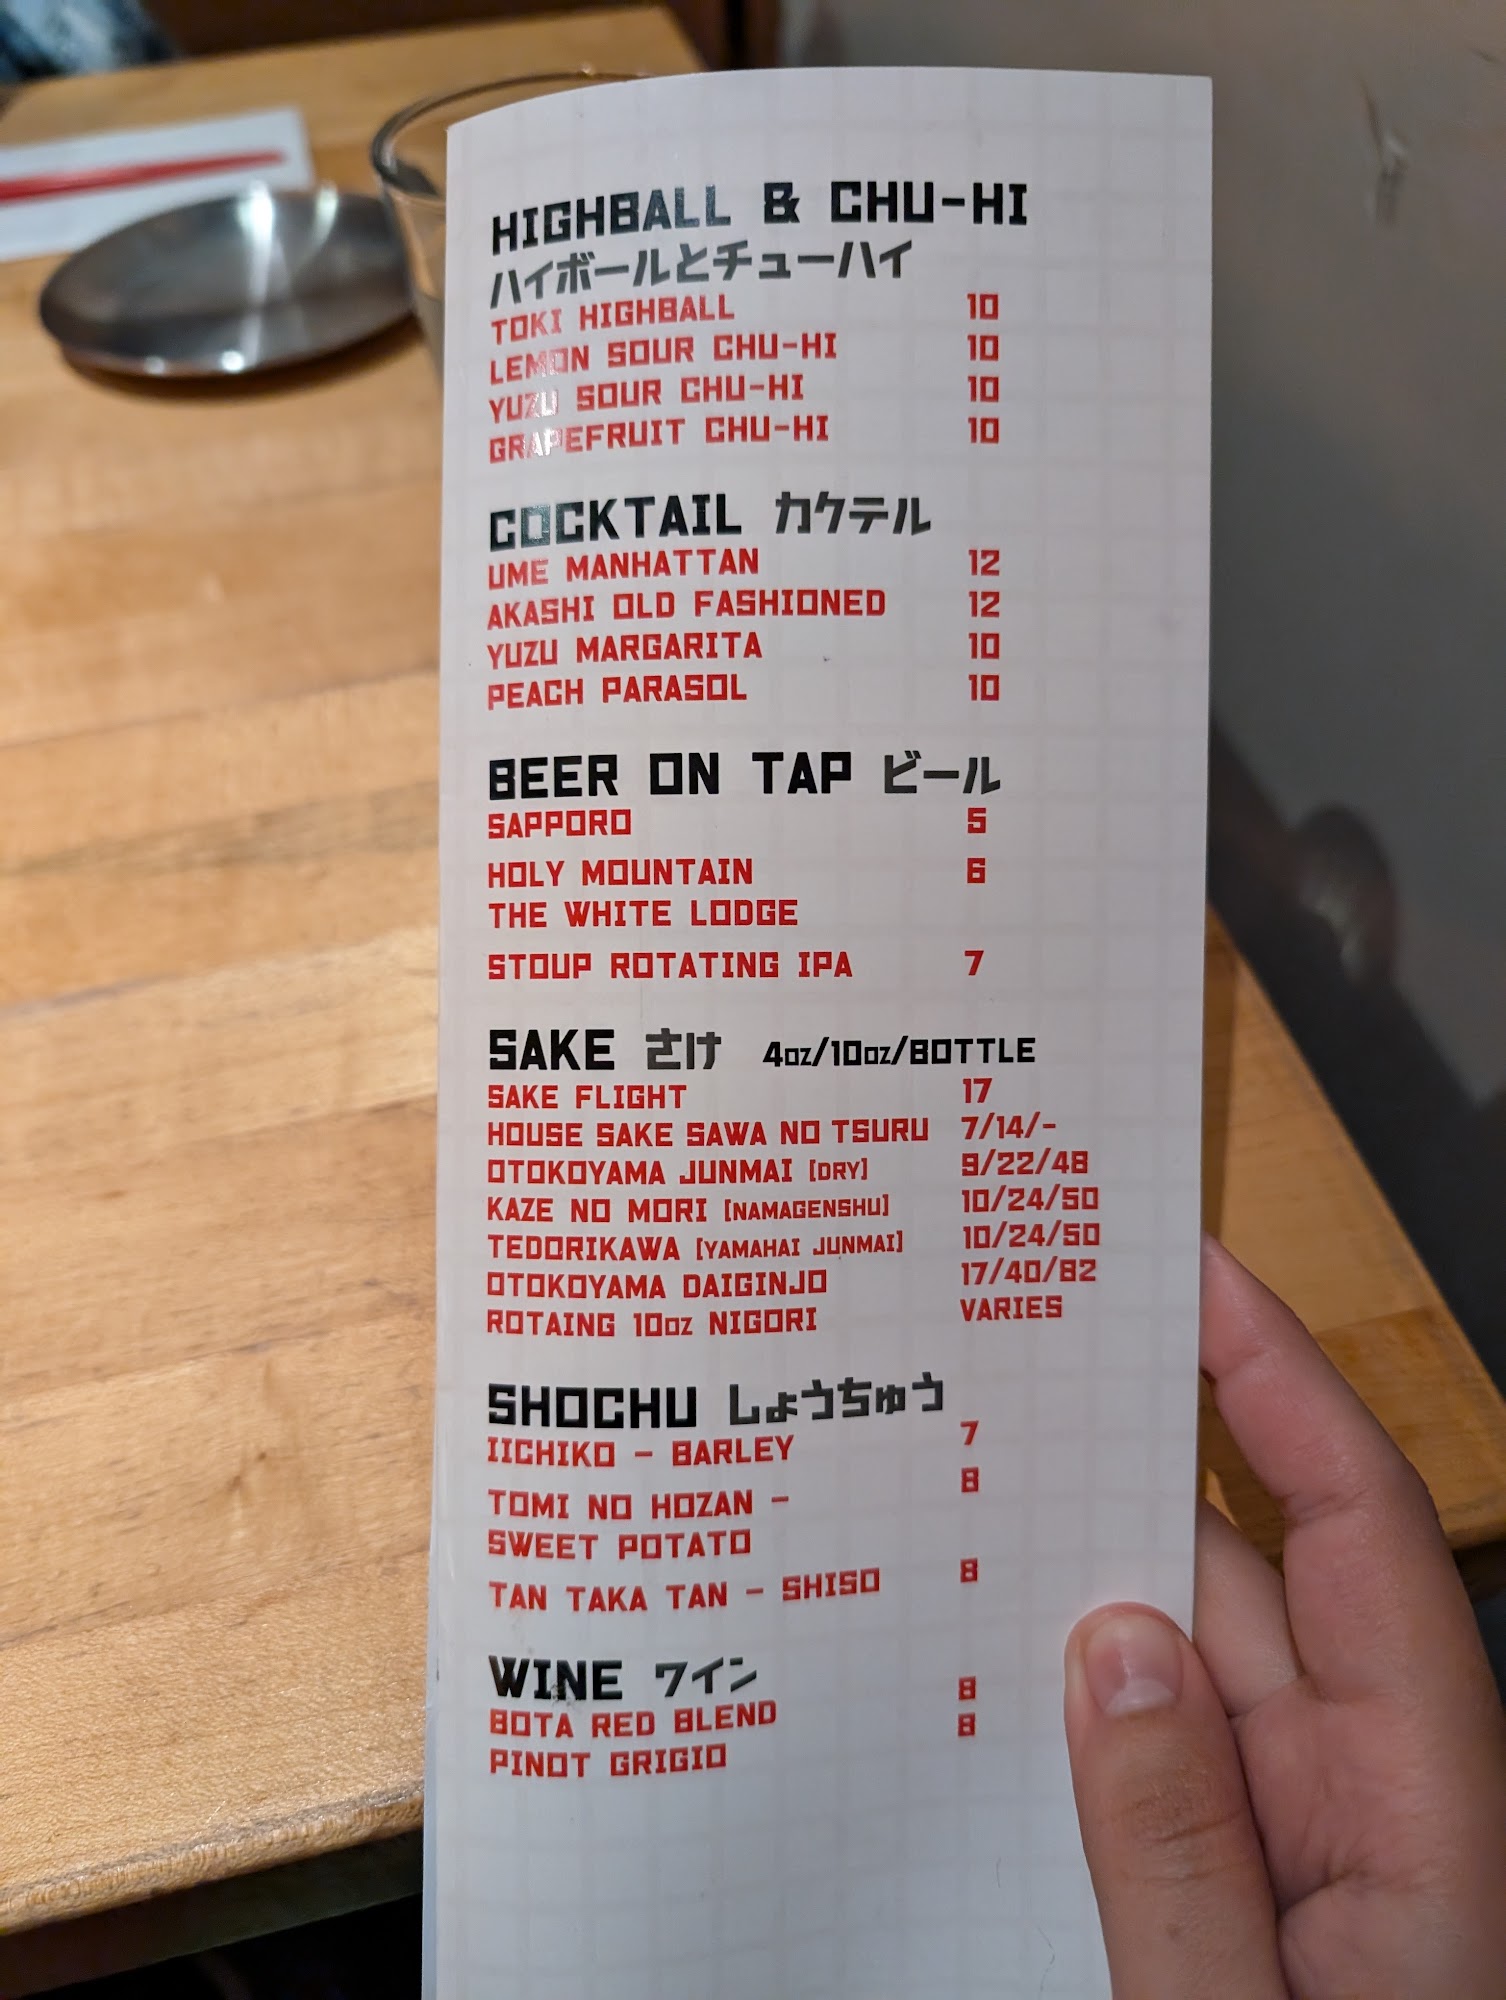 HIGHBALL & CHU-HI
ハイボールとチューハイ
TOKI HIGHBALL 10
LEMON SOUR CHU-HI 10
YUZU SOUR CHU-HI 10
GRAPEFRUIT CHU-HI 10
COCKTAIL カクテル
UME MANHATTAN 12
AKASHI OLD FASHIONED 12
YUZU MARGARITA 10
PEACH PARASOL 10
BEER ON TAP ビール
SAPPORO 5
HOLY MOUNTAIN 6
THE WHITE LODGE
STOUP ROTATING IPA 7
SAKE さけ 4oz/10oz/BOTTLE
SAKE FLIGHT 17
HOUSE SAKE SAWA NO TSURU 7/14/-
OTOKOYAMA JUNMAI [DRY] 9/22/48
KAZE NO MORI [NAMAGENSHU] 10/24/50
TEDORIKAWA [YAMAHAI JUNMAI] 10/24/50
OTOKOYAMA DAIGINJO 17/40/82
ROTAING 10oz NIGORI VARIES
SHOCHU しょうちゅう
IICHIKO - BARLEY 7
TOMI NO HOZAN - 8
SWEET POTATO
TAN TAKA TAN - SHISO 8
WINE ワイン
BOTA RED BLEND 8
PINOT GRIGIO 8